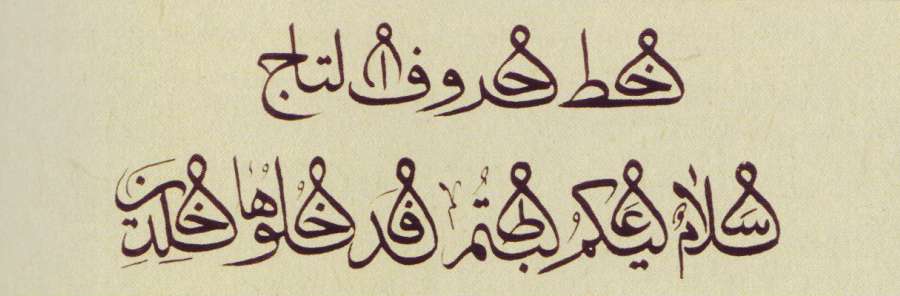 خط حروف التاج
سلام عليكم طبتم فادخلوها خلدين